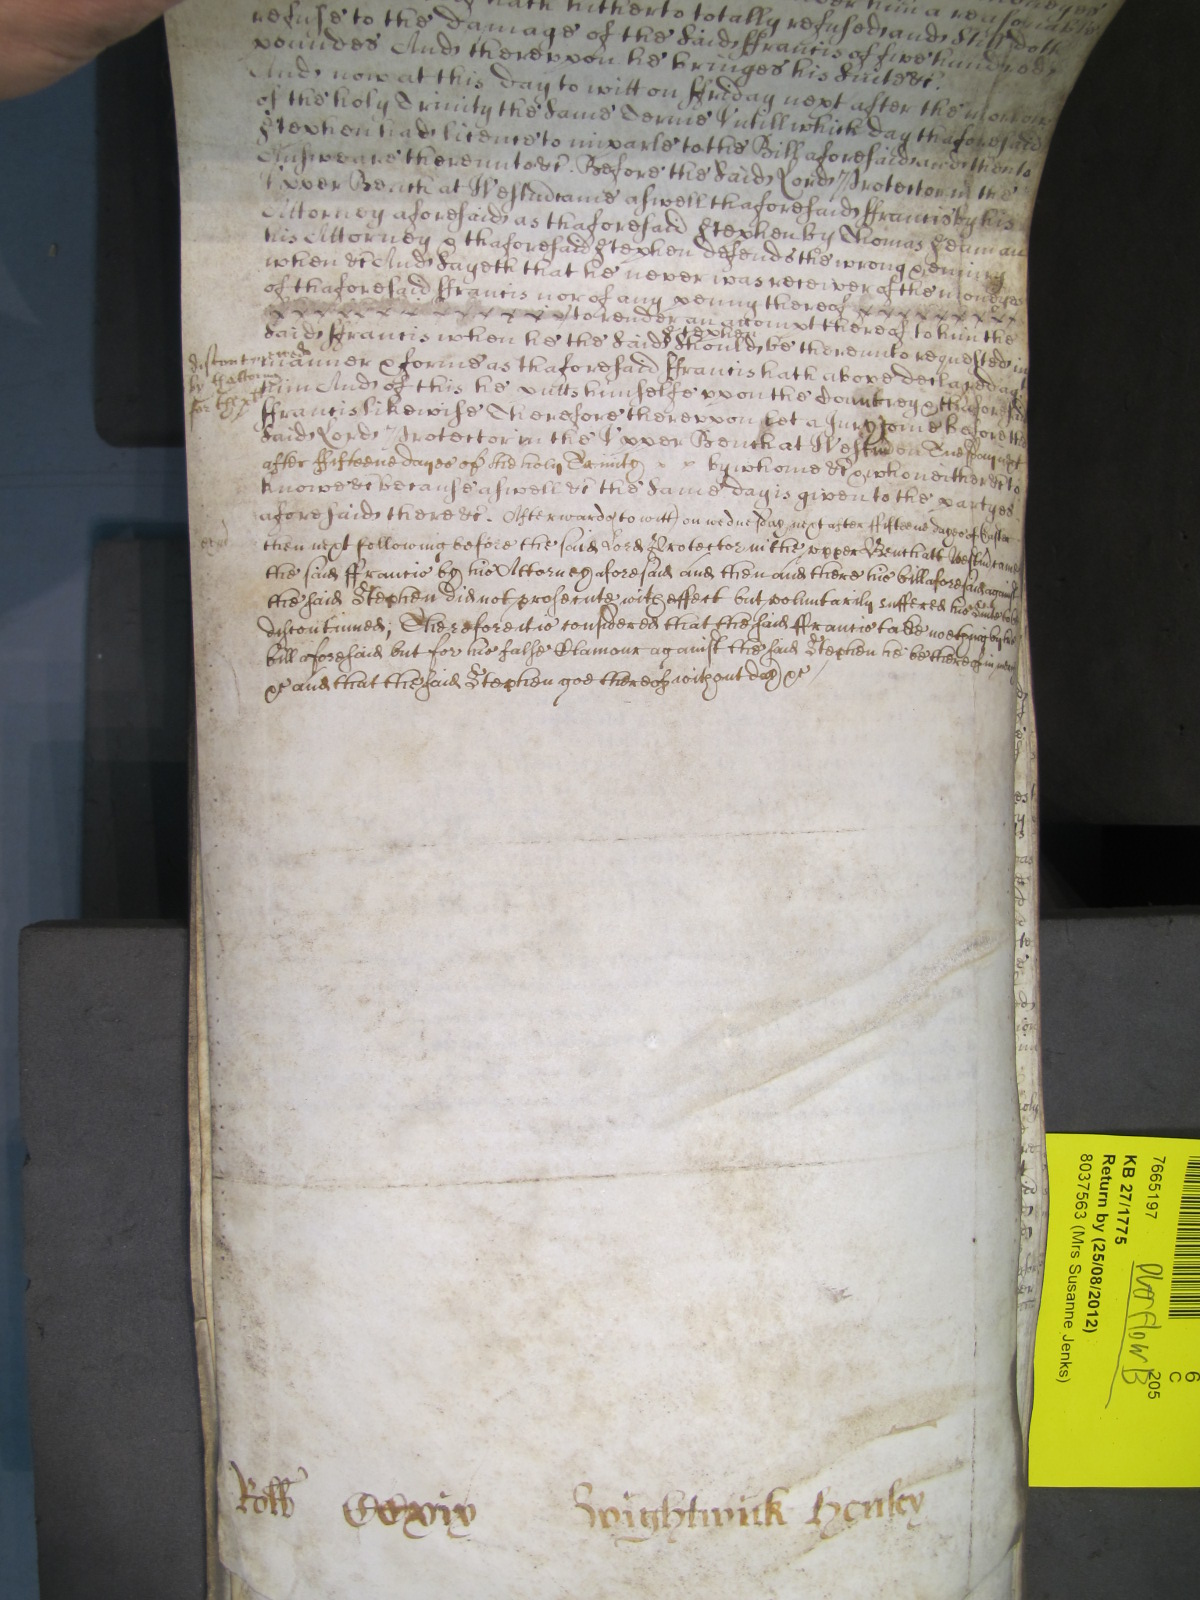 hath hitherto totally refused and still doth
refuse to the damage of the said ffrancis of five hundred
poundes And thereuppon he bringes his suite &c.
And now at this day to witt on ffriday next after the morrow
of the holy Trinity the same Terme Untill which day thaforesaid
Stephen had licence to imparle to the Bill aforesaid and then to
Answeare thereunto &c. Before the said Lord Protector in the
Upper Bench at Westm came aswell thaforesaid ffrancis by his
Attorney aforesaid as thaforesaid Stephen by Thomas Seaman
his Attorney & thaforesaid Stephen defends the wrong & iniury
when &c And Sayeth that he never was receiver of the moneyes
of thaforesaid ffrancis nor of any penny thereof
to render an accompt thereof to him the
said ffrancis when he the said Stephen should be thereunto requested in
manner & forme as thaforesaid ffrancis hath above declared agt
him And of this he putts himselfe uppon the Countrey & thaforesd
ffrancis likewise Therefore thereuppon let a Jury come before the
said Lord Protector in the Upper Bench at Westm on Tuesday next
after ffifteene dayes of the holy Trinity by whome &c & who neither &c to
knowe &c because aswell &c the same day is given to the partyes
aforesaid there &c. Afterwards to witt on wednesday next after fifteene dayes of Easter
then next following before the said Lord Protector in the upper Bench att Westm came
the said ffrancis by his Attorney aforesaid and then and there his bill aforesaid against
the said Stephen did not prosecute with effect but voluntarily suffered his suite to be
discontinued; Therefore it is considered that the said ffrancis take nothing by his
bill aforesaid but for his false Clamour against the said Stephen he be thereof in mercy
&c and that the said Stephen goe thereof without day &c
discontinued
by
for
Roll CCxvix Wightwick Henley
7665197
KB 27/1775
Return by (25/08/2012)
8037563 (Mrs Susanne Jenks)
Overflow B
205
6
C